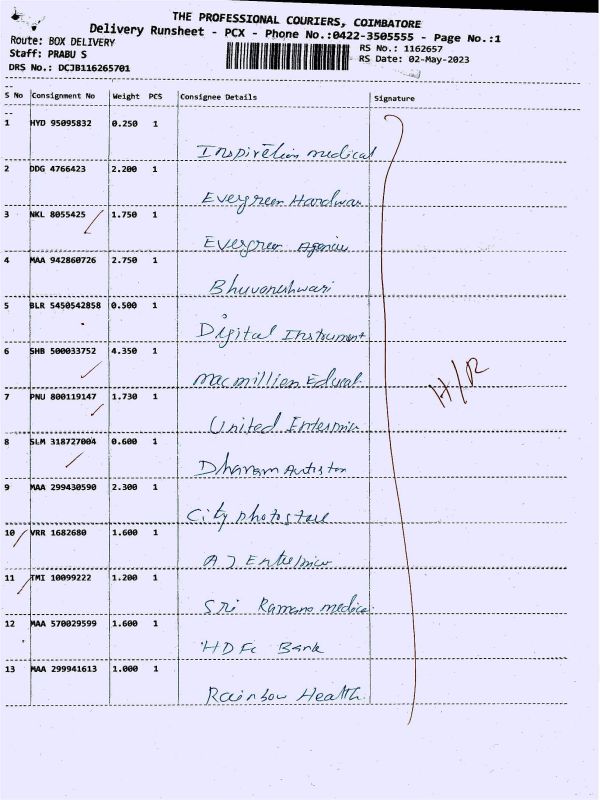 THE PROFESSIONAL COURIERS, COIMBATORE
Delivery Runsheet - PCX - Phone No.:0422-3505555 - Page No.:1
Route: BOX DELIVERY
Staff: PRABU S
DRS No.: DCJB116265701
RS No.: 1162657
RS Date: 02-May-2023
S No Consignment No Weight PCS Consignee Details Signature
1 HYD 95095832 0.250 1
Inspiration medical
2 DDG 4766423 2.200 1
Evergreen Hardwar
3 NKL 8055425 1.750 1
Evergreen Agencies
4 MAA 942860726 2.750 1
Bhuvoneshwari
5 BLR 5450542858 0.500 1
Digital Instrument
6 SHB 500033752 4.350 1
macmillien
7 PNU 800119147 1.730 1
United
8 SLM 318727004 0.600 1
Dharam
9 MAA 299430590 2.300 1
City photostate
10 VRR 1682680 1.600 1
AJ
11 TMI 10099222 1.200 1
Sri Ramana medical
12 MAA 570029599 1.600 1
HDFC Bank
13 MAA 299941613 1.000 1
Rainbow Health
H/R